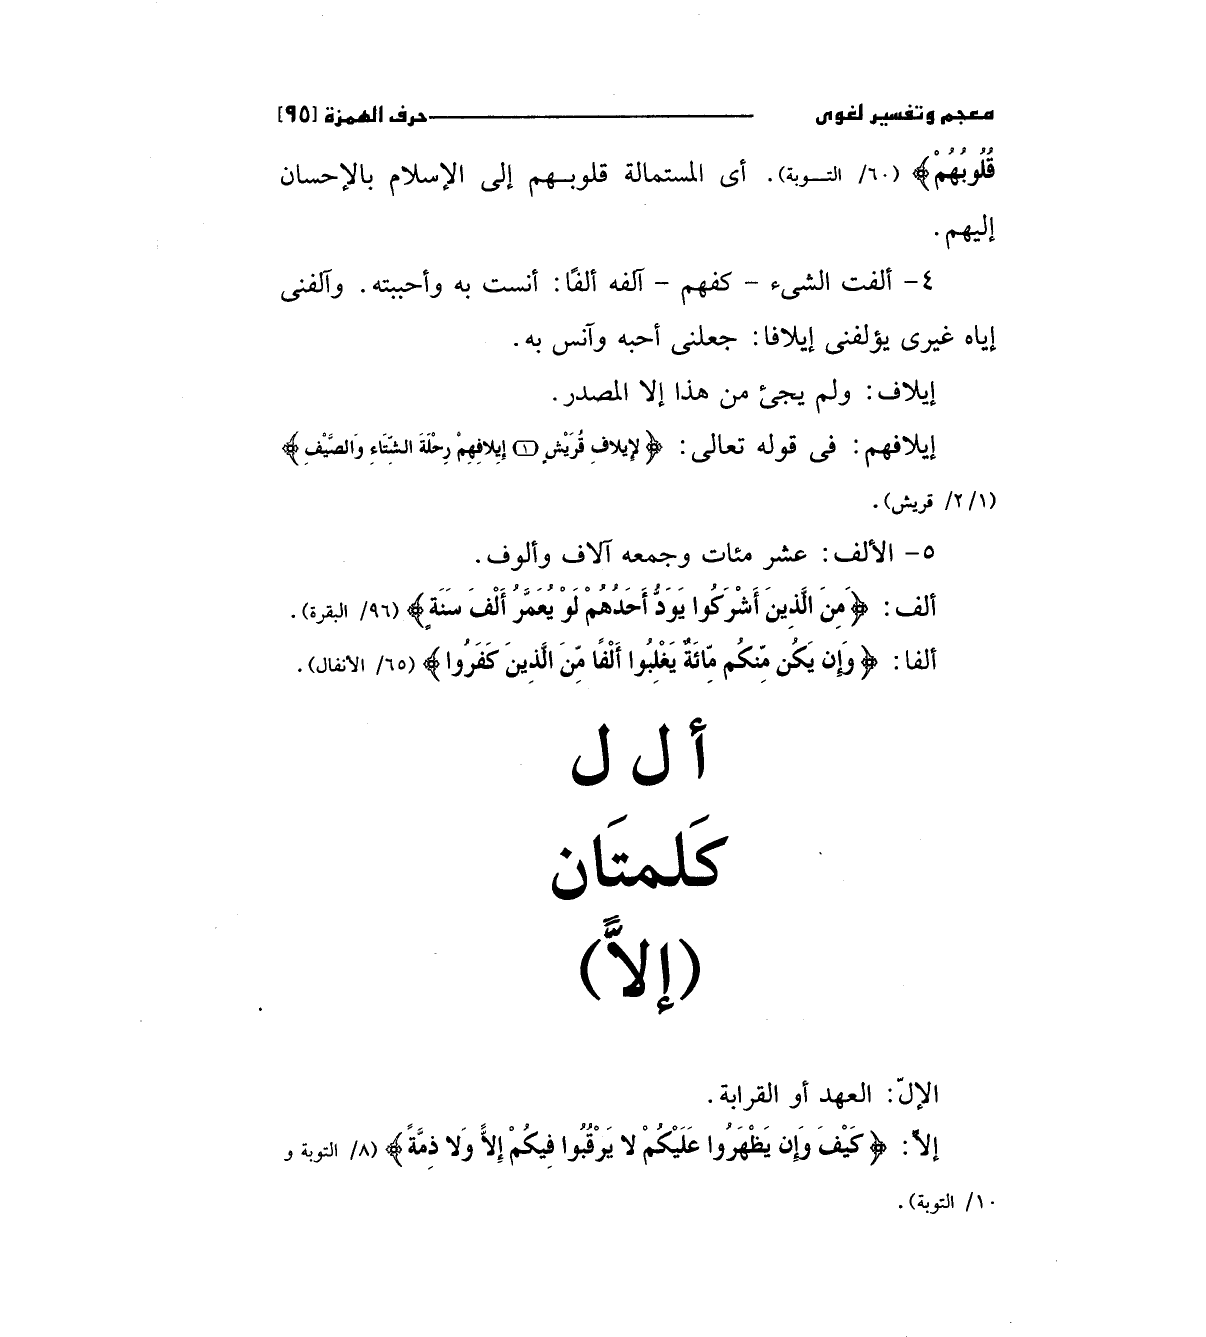 معجم وتفسير لغوى حرف الهمزة [٩٥]
قُلُوبُهُمْ﴾ (٦٠/ التوبة). أى المستمالة قلوبهم إلى الإسلام بالإحسان
إليهم.
٤- ألفت الشىء - كفهم - آلفه ألفًا: أنست به وأحببته. وآلفنى
إياه غيرى يؤلفنى إيلافا: جعلنى أحبه وآنس به.
إيلاف: ولم يجئ من هذا إلا المصدر.
إيلافهم: فى قوله تعالى: ﴿لإيلافِ قُرَيْشٍ (١) إِيلافِهِمْ رِحْلَةَ الشِّتَاءِ وَالصَّيْفِ﴾
(٢/١/ قريش).
٥- الألف: عشر مئات وجمعه آلاف وألوف.
ألف: ﴿مِنَ الَّذِينَ أَشْرَكُوا يَوَدُّ أَحَدُهُمْ لَوْ يُعَمَّرُ أَلْفَ سَنَةٍ﴾ (٩٦/ البقرة).
ألفا: ﴿وَإِن يَكُن مِّنكُم مِّائَةٌ يَغْلِبُوا أَلْفًا مِّنَ الَّذِينَ كَفَرُوا﴾ (٦٥/ الأنفال).
أ ل ل
كَلمتَان
(إلاًّ)
الإلّ: العهد أو القرابة.
إلاّ: ﴿كَيْفَ وَإِن يَظْهَرُوا عَلَيْكُمْ لا يَرْقُبُوا فِيكُمْ إِلاًّ وَلا ذِمَّةً﴾ (٨/ التوبة و
١٠/ التوبة).